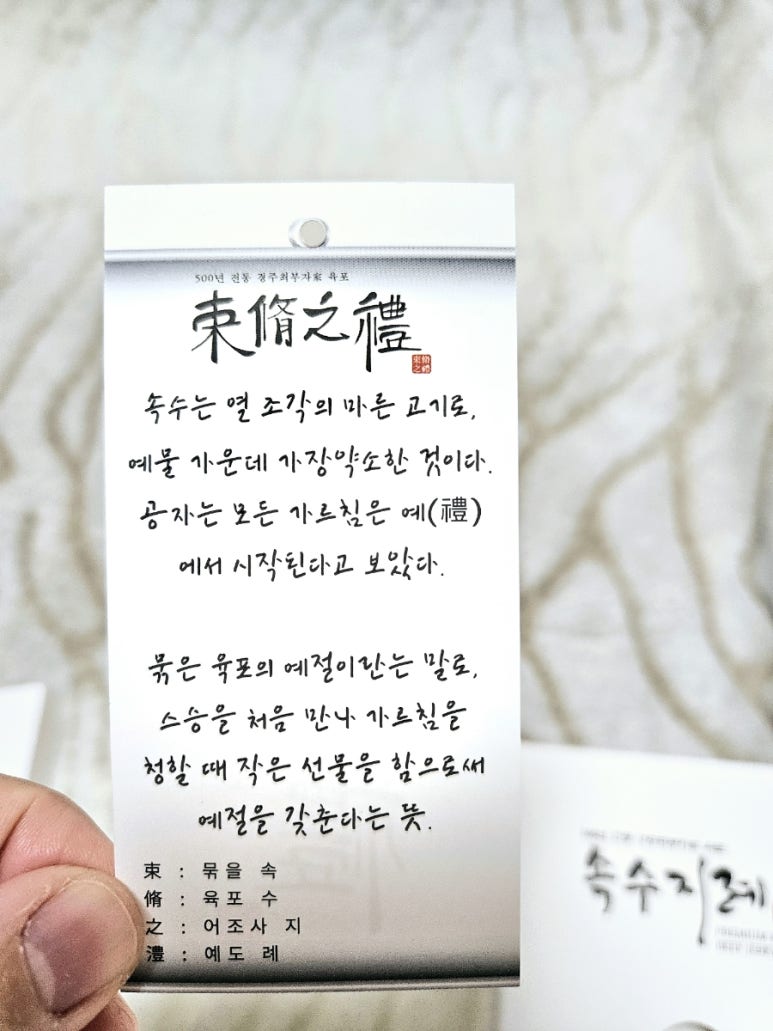 500년 전통 경주최부자家 육포
束脩之禮
束脩
之禮
속수는 열 조각의 마른 고기로,
예물 가운데 가장약소한 것이다.
공자는 모든 가르침은 예(禮)
에서 시작된다고 보았다.
묶은 육포의 예절이란는 말로,
스승을 처음 만나 가르침을
청할 때 작은 선물을 함으로써
예절을 갖춘다는 뜻.
束 : 묶을 속
脩 : 육포 수
之 : 어조사 지
澧 : 예도 례
속수지례